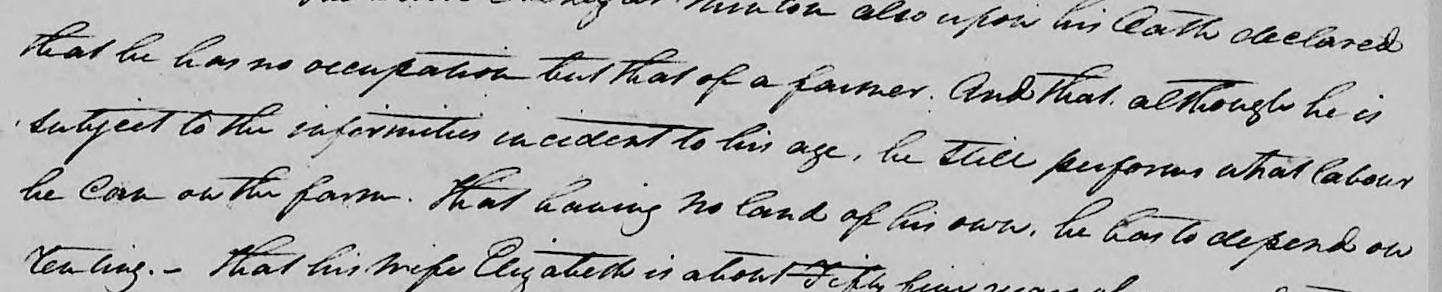 also upon his Oath declared
that he has no occupation but that of a farmer. And that although he is
subject to the infirmities incident to his age, he still performs what labour
he can on the farm. That having no land of his own, he has to depend on
renting. – That his wife Elizabeth is about Fifty